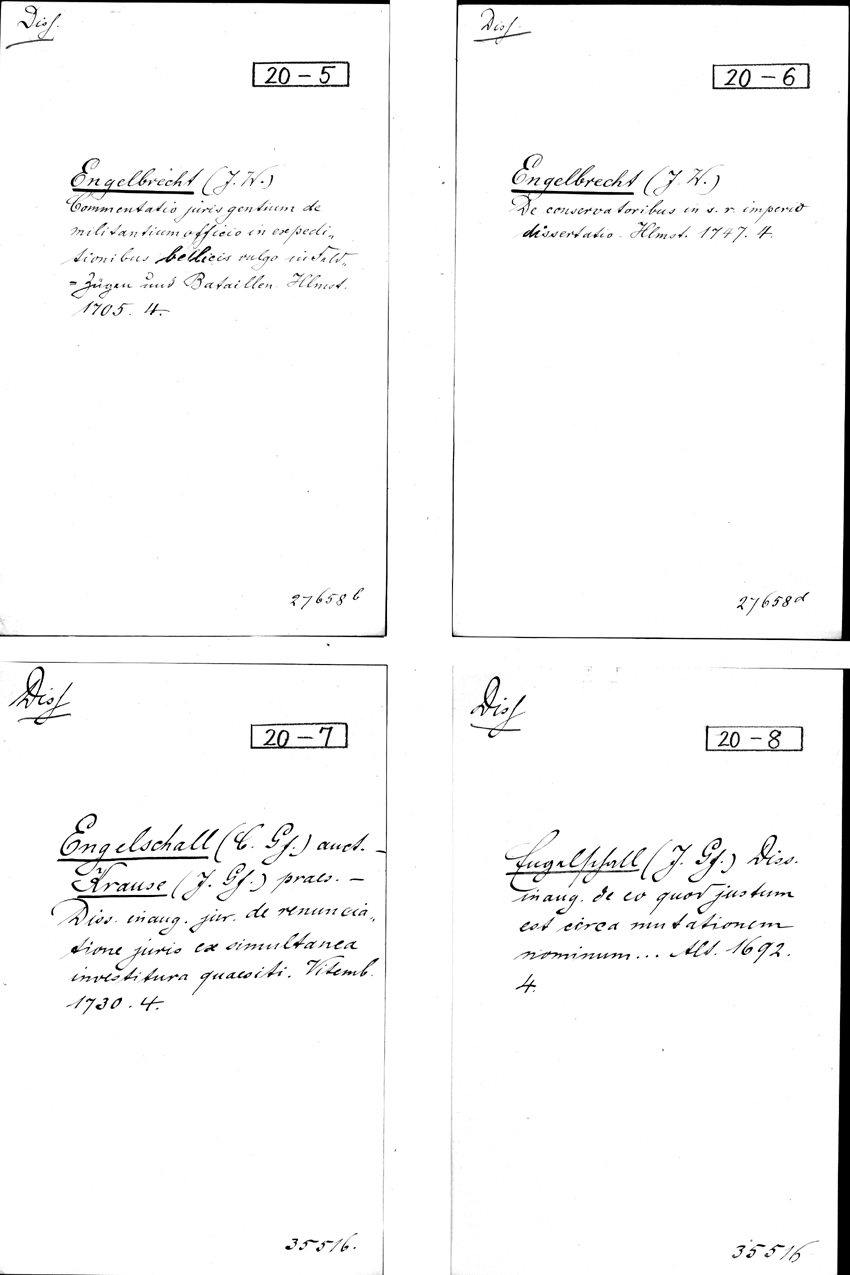 Diss.
20-5
Engelbrecht (J. W.)
Commentatio juris gentium de
militantium officio in expedi„
tionibus bellicis vulgo in Feld-
=Zügen und Bataillen. Hlmst.
1705. 4.
27658 b
Diss.
20-6
Engelbrecht (J. W.)
De conservatoribus in s. r. imperio
dissertatio. Hlmst. 1747. 4.
27658 d
Diss
20-7
Engelschall (C. Gf.) auct. –
Krause (J. Gf.) praes. –
Diss. inaug. jur. de renuncia„
tione juris ex simultanea
investitura quaesiti. Vitemb.
1730. 4.
35516.
Diss
20-8
Engelschall (J. Gf.) Diss.
inaug. de eo quod justum
est circa mutationem
nominum... Alt. 1692.
4.
35516